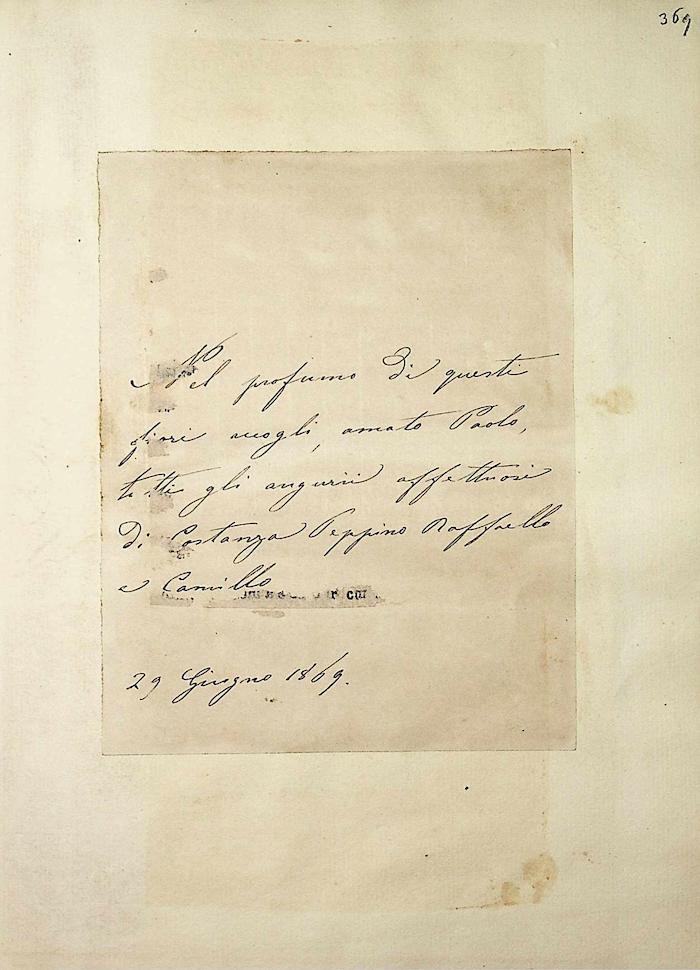 369
Nel profumo di questi
fiori accogli, amato Paolo,
tutti gli augurii affettuosi
di Costanza Peppino Raffaello
e Camillo
29 Giugno 1869.